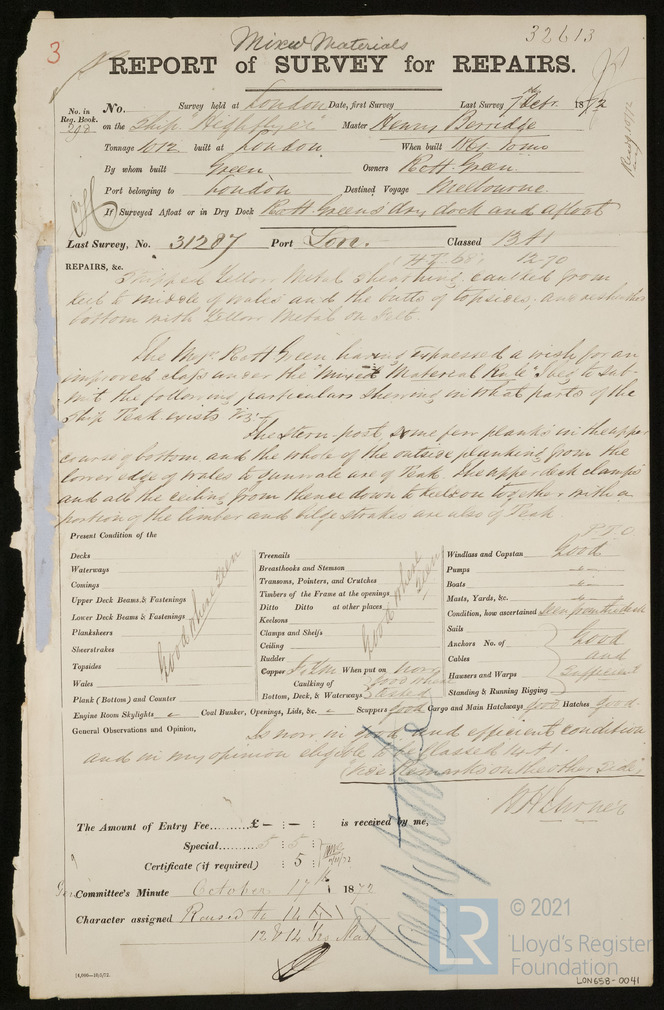 32613
3
Mixed Materials
REPORT of SURVEY for REPAIRS.
No. in Reg. Book. No. Survey held at London Date, first Survey Last Survey 7 Octr. 1872
on the Ship "Highflyer" Master Henry Berridge
Tonnage 1012 built at London When built 1861
By whom built Green Owners R & H Green
Port belonging to London Destined Voyage Melbourne.
If Surveyed Afloat or in Dry Dock R & H Green's dry dock and afloat
Last Survey, No. 31287 Port Lon. Classed 13 A1
12.70
REPAIRS, &c. Stripped Yellow Metal sheathing, caulked from
keel to middle of wales and the butts of topsides, and
bottom with Yellow Metal on Felt.
The Messrs. R & H Green having expressed a wish for an
improved class under the "Mixed Material Rule" I beg to sub-
mit the following particulars shewing in what parts of the
Ship Teak exists Viz:
The stern-post some few planks in the upper
course of bottom and the whole of the outside planking from the
lower edge of wales to gunwale are of Teak. The upper deck clamps
and all the ceiling from thence down to keelson together with a
portion of the limber and bilge strakes are also of Teak.
P.T.O
Present Condition of the
Decks
Waterways
Comings
Upper Deck Beams & Fastenings
Lower Deck Beams & Fastenings
Planksheers
Sheerstrakes
Topsides
Wales
Plank (Bottom) and Counter
Good where seen
Treenails
Breasthooks and Stemson
Transoms, Pointers, and Crutches
Timbers of the Frame at the openings
Ditto Ditto at other places
Keelsons
Clamps and Shelfs
Ceiling
Rudder
Good where seen
Copper F. & YM When put on now
Caulking of Bottom, Deck, & Waterways Good when tested
Windlass and Capstan Good
Pumps
Boats
Masts, Yards, &c.
Condition, how ascertained Seen from the deck
Sails
Anchors No. of
Cables
Hausers and Warps
Standing & Running Rigging
Good and Sufficient
Engine Room Skylights Coal Bunker, Openings, Lids, &c. Scuppers good Cargo and Main Hatchways good Hatches good
General Observations and Opinion, Is now in good and efficient condition
and in my opinion eligible to be classed A1.
(Vide Remarks on the other side)
W H Turner
The Amount of Entry Fee......... £ - : - : is received by me,
Special......... 5 : 5 :
Certificate (if required) : 5 :
Committee's Minute October 17th 1872
Character assigned Raised to 14
12 & 14 Yrs Mat
14,000—10/5/72.
LR
© 2021
Lloyd's Register
Foundation
LON658-0041